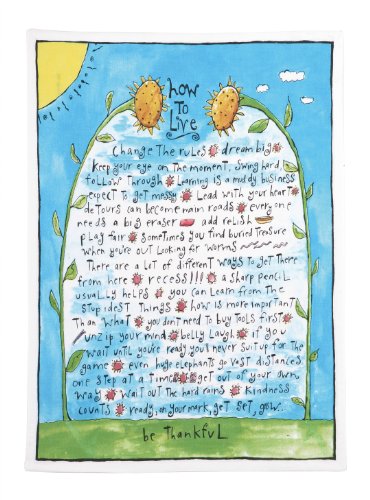 how
To
Live
Change The rules dream big
keep your eye on the moment, swing hard
follow Through Learning is a muddy business
expect to get messy Lead with your heart
detours can become main roads everyone
needs a big eraser add relish
play fair sometimes you find buried treasure
when you're out looking for worms
There are a lot of different ways to get there
from here recess!!! a sharp pencil
usually helps you can learn from the
stupidest Things how is more important
Than what you don't need to buy tools first
unzip your mind belly laugh if you
wait until you're ready you'll never suit up for the
game even huge elephants go vast distances
one step at a time get out of your own
way wait out the hard rains kindness
counts ready, on your mark, get set, grow..
be thankful